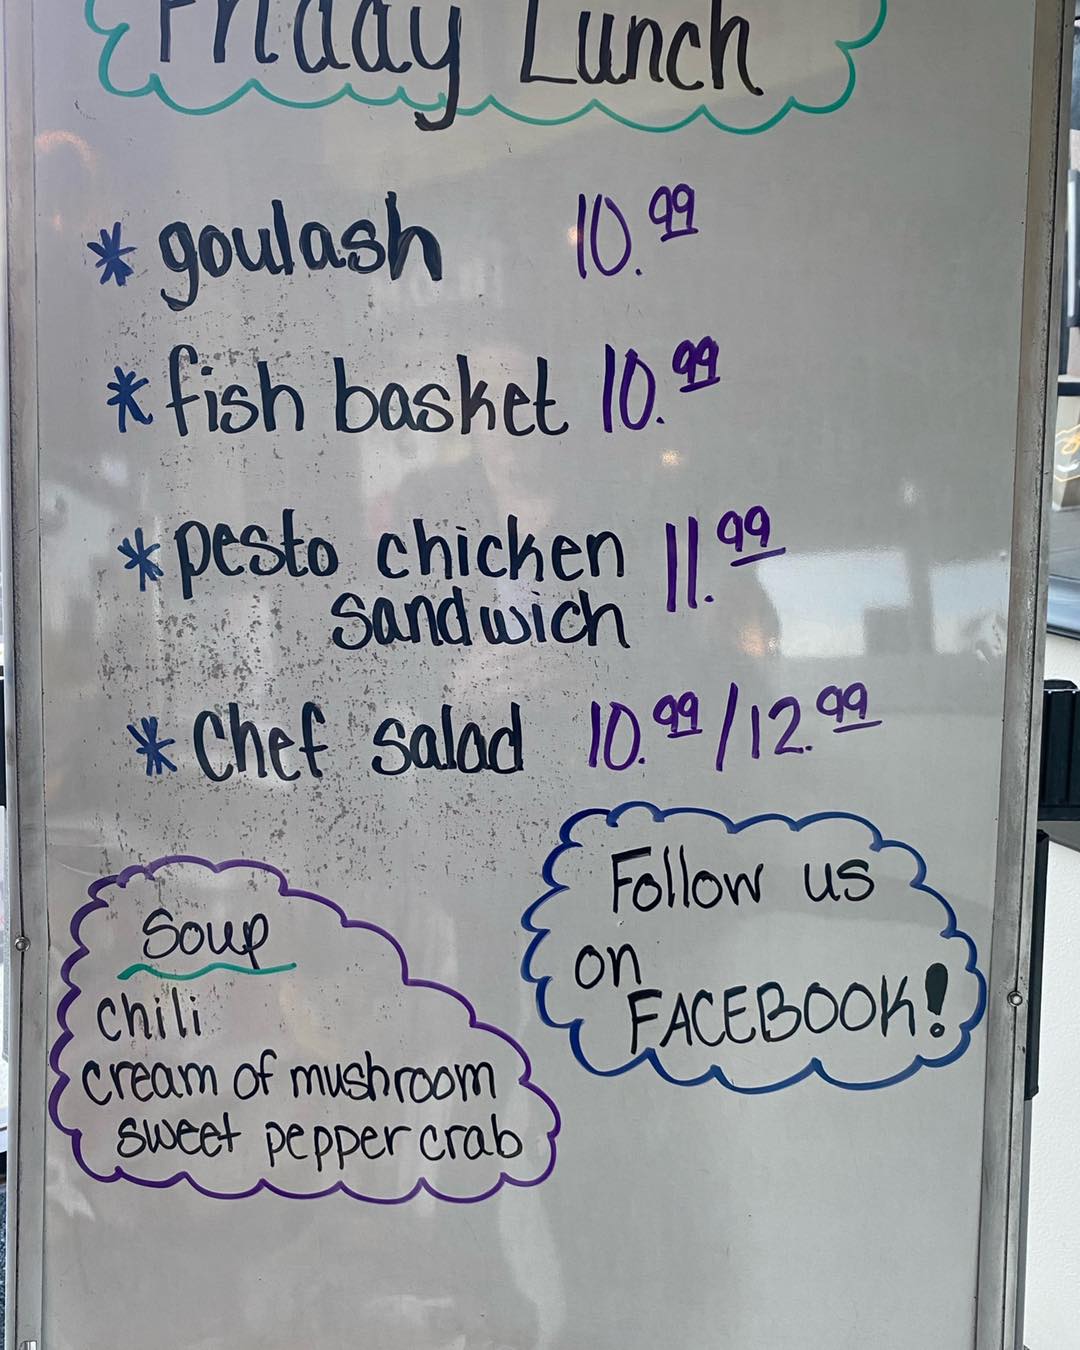 Friday Lunch
* goulash 10.99
* fish basket 10.99
* pesto chicken 11.99
sandwich
* Chef salad 10.99/12.99
Soup
chili
cream of mushroom
sweet pepper crab
Follow us
on
FACEBOOK!